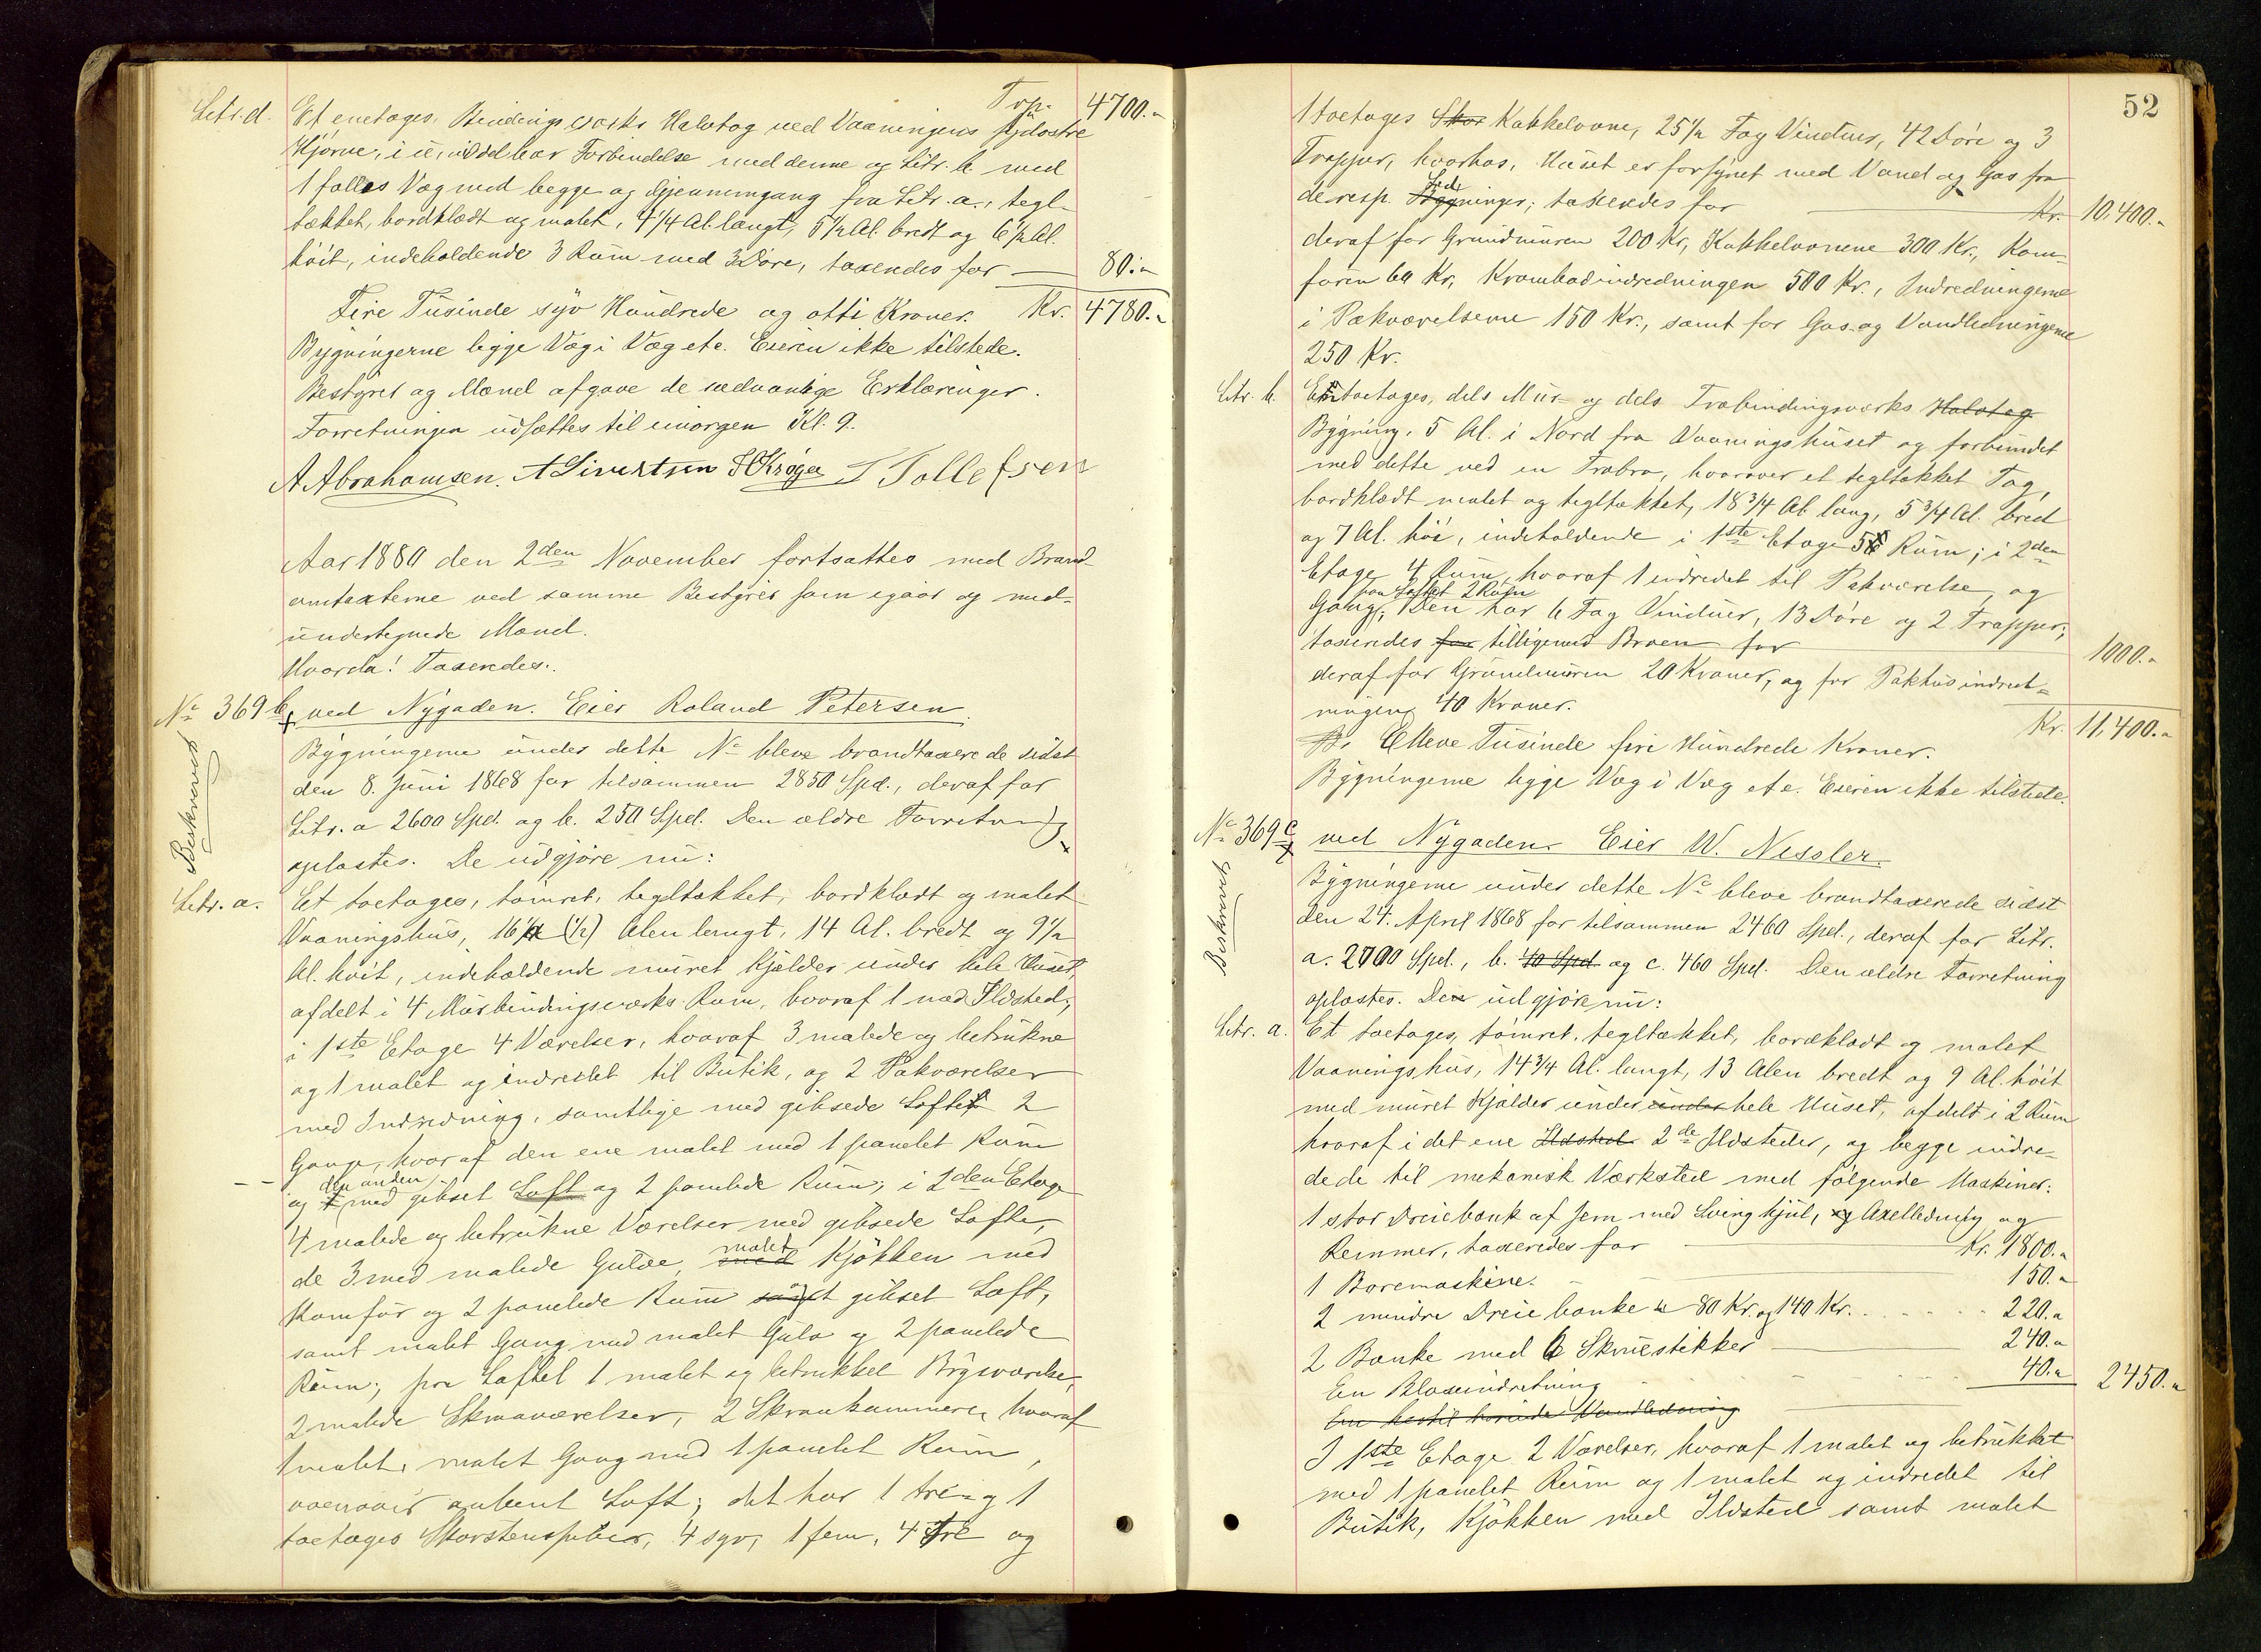 Trp. 4700.-
Litr. d. Et enetages, Bindingsværks Halvtag ved Vaaningens sydostre
Hjørne, i umiddelbar Forbindelse med denne og Litr. b. med
1 fælles Væg med begge og Gjennemgang fra Litr. a., tegl-
tækket, bordklædt og malet, 4 1/4 Al. langt, 5 1/2 Al. bredt og 6 1/2 Al.
høit, indeholdende 3 Rum med 3 Døre, taxeredes for — 80.-
Fire Tusinde syv Hundrede og otti Kroner. Kr. 4780.-
Bygningerne ligge Væg i Væg etc. Eieren ikke tilstede.
Bestyrer og Mænd afgave de sedvanlige Erklæringer.
Forretningen udsættes til imorgen Kl. 9.
A Abrahamsen. A Sivertsen Krøger T Tollefsen
Aar 1880 den 2den November fortsattes med Brand-
omtaxterne ved samme Bestyrer som igaar og med-
undertegnede Mænd.
Hvorda! Taxeredes:
No 369 b, ved Nygaden. Eier Roland Petersen.
Beskrevet
Bygningerne under dette No bleve brandtaxerede sidst
den 8. Juni 1868 for tilsammen 2850 Spd., deraf for
Litr. a 2600 Spd. og b. 250 Spd. Den ældre Forretning
oplæstes. De udgjøre nu:
Litr. a. Et toetages, tømret, tegltækket, bordklædt og malet
Vaaningshus, 16 (1/2) Alen langt, 14 Al. bredt og 9 1/2
Al. høit, indeholdende muret Kjælder under hele Huset,
afdelt i 4 Murbindingsværks Rum, hvoraf 1 med Ildsted;
i 1ste Etage 4 Værelser, hvoraf 3 malede og betrukne
og 1 malet og indredet til Butik, og 2 Pakværelser
med Indredning, samtlige med gibsede Lofter, 2
Gange, hvoraf den ene malet med 1 panelet Rum
og den anden med gibset Loft og 2 panelede Rum; i 2den Etage
4 malede og betrukne Værelser med gibsede Lofter,
de 3 med malede Gulve, malet Kjøkken med
Komfür og 2 panelede Rum og gibset Loft,
samt malet Gang med malet Gulv og 2 panelede
Rum; paa Loftet 1 malet og betrukket Bygværelse,
2 malede Skraaværelser, 2 Skraakammere, hvoraf
1 malet, malet Gang med 1 panelet Rum,
ovenover aabent Loft; det har 1 tre- og 1
toetages Skorstenspiber, 4 syv, 1 fem, 4 tre og
52
1 toetages Kakkelovne, 25 1/2 Fag Vinduer, 42 Døre og 3
Trapper, hvorhos, Huset er forsynet med Vand og Gas fra
de resp. Ledninger; taxeredes for — Kr. 10,400.-
deraf for Grundmuren 200 Kr., Kakkelovnene 300 Kr., Kom-
füren 60 Kr., Krambodindredningen 500 Kr., Indredningerne
i Pakværelserne 150 Kr., samt for Gas- og Vandledningerne
250 Kr.
Litr. b. En toetages, dels Mur- og dels Træbindingsværks Halvtag
Bygning, 5 Al. i Nord fra Vaaningshuset og forbundet
med dette ved en Træbro, hvorover et tegltækket Tag,
bordklædt malet og tegltækket, 18 3/4 Al. lang, 5 3/4 Al. bred
og 7 Al. høi, indeholdende i 1ste Etage 5 Rum; i 2den
Etage 4 Rum, hvoraf 1 indredet til Pakværelse, og
Gang; paa Loftet 2 Rum Den har 6 Fag Vinduer, 13 Døre og 2 Trapper;
taxeredes for tilligemed Broen for — 1000.-
deraf for Grundmuren 20 Kroner, og for Pakhusindred-
ningen 40 Kroner. Kr. 11,400.-
Elleve Tusinde fire Hundrede Kroner.
Bygningerne ligge Væg i Væg etc. Eieren ikke tilstede.
No 369 c ved Nygaden. Eier W. Nissler.
Beskrevet
Bygningerne under dette No bleve brandtaxerede sidst
den 24. April 1868 for tilsammen 2460 Spd., deraf for Litr.
a. 2000 Spd., b. 40 Spd. og c. 460 Spd. Den ældre Forretning
oplæstes. De udgjøre nu:
Litr. a. Et toetages, tømret, tegltækket, bordklædt og malet
Vaaningshus, 14 3/4 Al. langt, 13 Alen bredt og 9 Al. høit
med muret Kjælder under under hele Huset, afdelt i 2 Rum
hvoraf i det ene Ildsted 2de Ildsteder, og begge indre-
dede til mekanisk Værksted med følgende Maskiner:
1 stor Dreiebænk af Jern med Svinghjul, og Axelledning og
Remmer, taxeredes for — Kr. 1800.-
1 Boremaskine. — 150.-
2 mindre Dreiebænke à 80 Kr. og 140 Kr. 220.-
2 Bænke med 6 Skruestikker — 240.-
En Blæseindretning 40.- 2450.-
I 1ste Etage 2 Værelser, hvoraf 1 malet og betrukket
med 1 panelet Rum og 1 malet og indredet til
Butik, Kjøkken med Ildsted samt malet